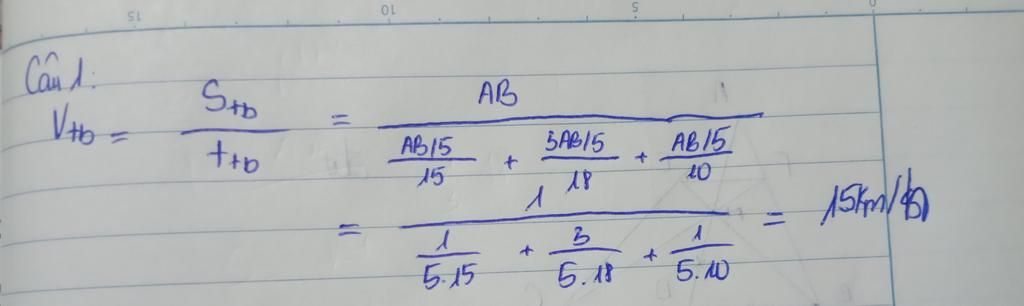 15 10 5 0
Câu 1:
V_tb = S_tb / t_tb = AB / (AB/5 / 15 + 3AB/5 / 18 + AB/5 / 10)
= 1 / (1 / 5.15 + 3 / 5.18 + 1 / 5.10) = 15km/h